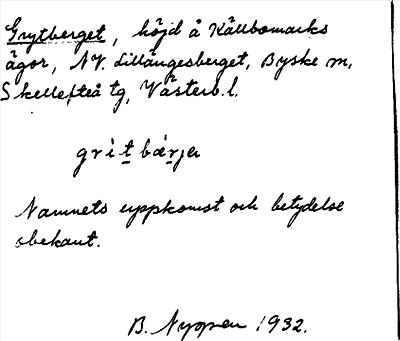 Grytberget, höjd å Källbomarks
ägor, NV. Lillängesberget, Byske sn,
Skellefteå tg, Västerb. l.
Namnets uppkomst och betydelse
obekant.
B. Nyman 1932.